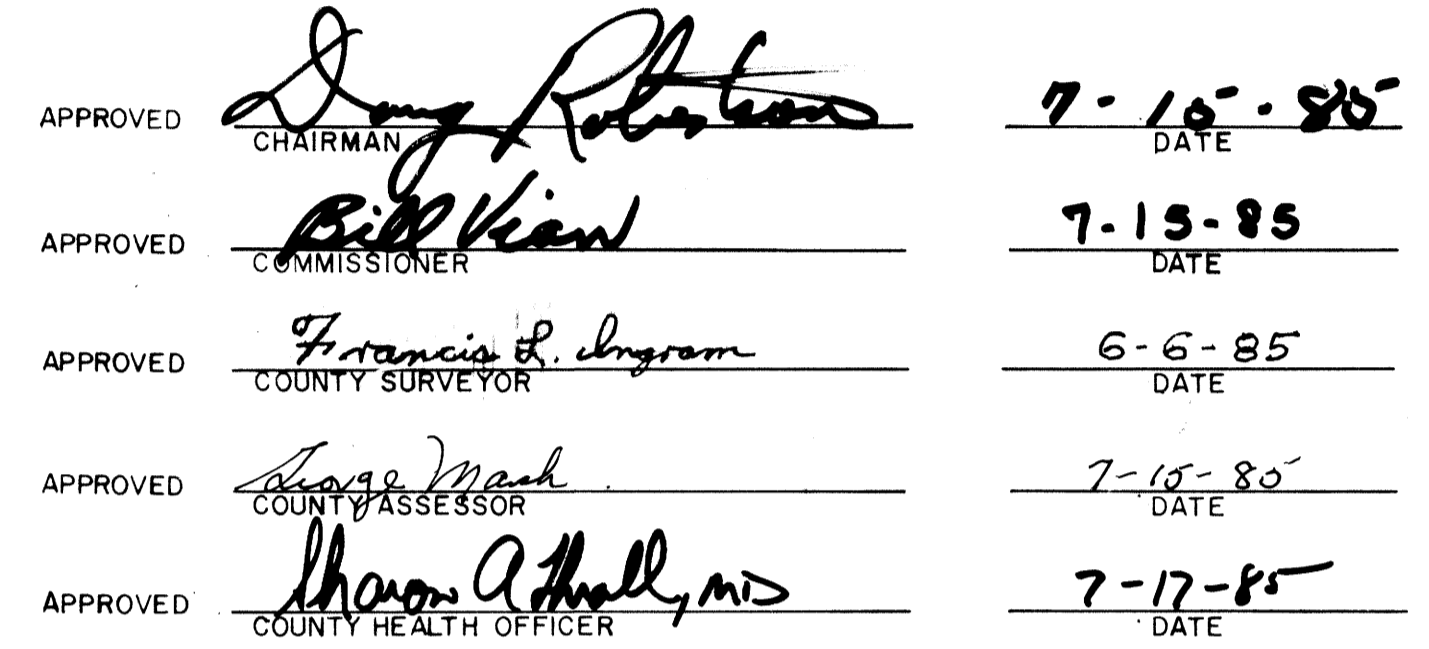 APPROVED Doug Robertson 7-15-85
CHAIRMAN DATE
APPROVED Bill Vian 7-15-85
COMMISSIONER DATE
APPROVED Francis L. Ingram 6-6-85
COUNTY SURVEYOR DATE
APPROVED George Marsh 7-15-85
COUNTY ASSESSOR DATE
APPROVED Sharon A Thrall, MD 7-17-85
COUNTY HEALTH OFFICER DATE